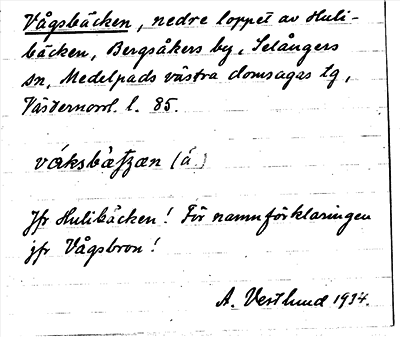 Vågsbäcken, nedre loppet av Huli-
bäcken, Bergsåkers by, Selångers
sn, Medelpads västra domsagas tg,
Västernorrl. l. 85.
(å.)
Jfr Hulibäcken! För namnförklaringen
jfr Vågsbron!
A. Vestlund 1934.